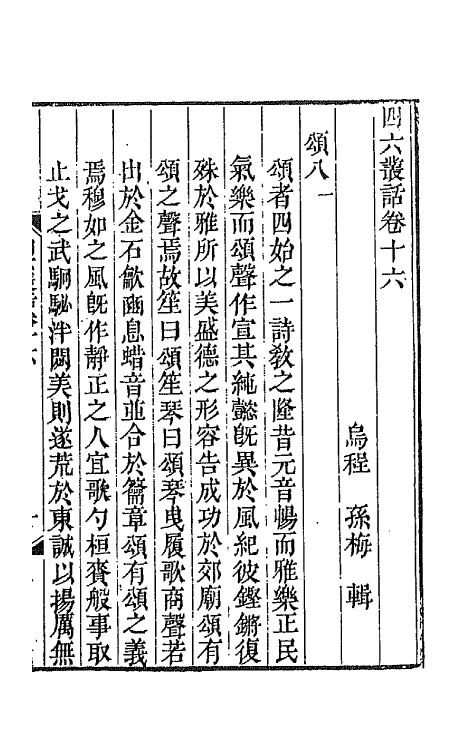 四六叢話卷十六
烏程 孫梅 輯
頌八
頌者四始之一詩敎之隆昔元音暢而雅樂正民
氣樂而頌聲作宣其純懿旣異於風紀彼鏗鏘復
殊於雅所以美盛德之形容告成功於郊廟頌有
頌之聲焉故笙曰頌笙琴曰頌琴曳履歌商聲若
出於金石龡豳息蜡音並合於籥章頌有頌之義
焉穆如之風旣作靜正之人宜歌勺桓賚般事取
止戈之武駉駜泮閟美則遂荒於東誠以揚厲無